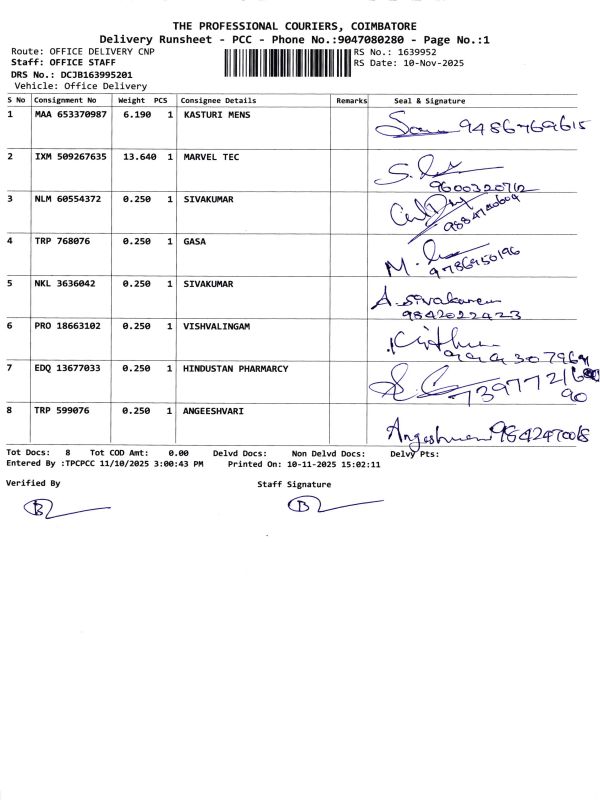 THE PROFESSIONAL COURIERS, COIMBATORE
Delivery Runsheet - PCC - Phone No.:9047080280 - Page No.:1
Route: OFFICE DELIVERY CNP RS No.: 1639952
Staff: OFFICE STAFF RS Date: 10-Nov-2025
DRS No.: DCJB163995201
Vehicle: Office Delivery
S No Consignment No Weight PCS Consignee Details Remarks Seal & Signature
1 MAA 653370987 6.190 1 KASTURI MENS 9486769615
2 IXM 509267635 13.640 1 MARVEL TEC
9600320712
3 NLM 60554372 0.250 1 SIVAKUMAR
4 TRP 768076 0.250 1 GASA
9786950196
5 NKL 3636042 0.250 1 SIVAKUMAR A. Sivakumar
9842022423
6 PRO 18663102 0.250 1 VISHVALINGAM
7 EDQ 13677033 0.250 1 HINDUSTAN PHARMARCY
90
8 TRP 599076 0.250 1 ANGEESHVARI
Tot Docs: 8 Tot COD Amt: 0.00 Delvd Docs: Non Delvd Docs: Delvy Pts:
Entered By :TPCPCC 11/10/2025 3:00:43 PM Printed On: 10-11-2025 15:02:11
Verified By Staff Signature